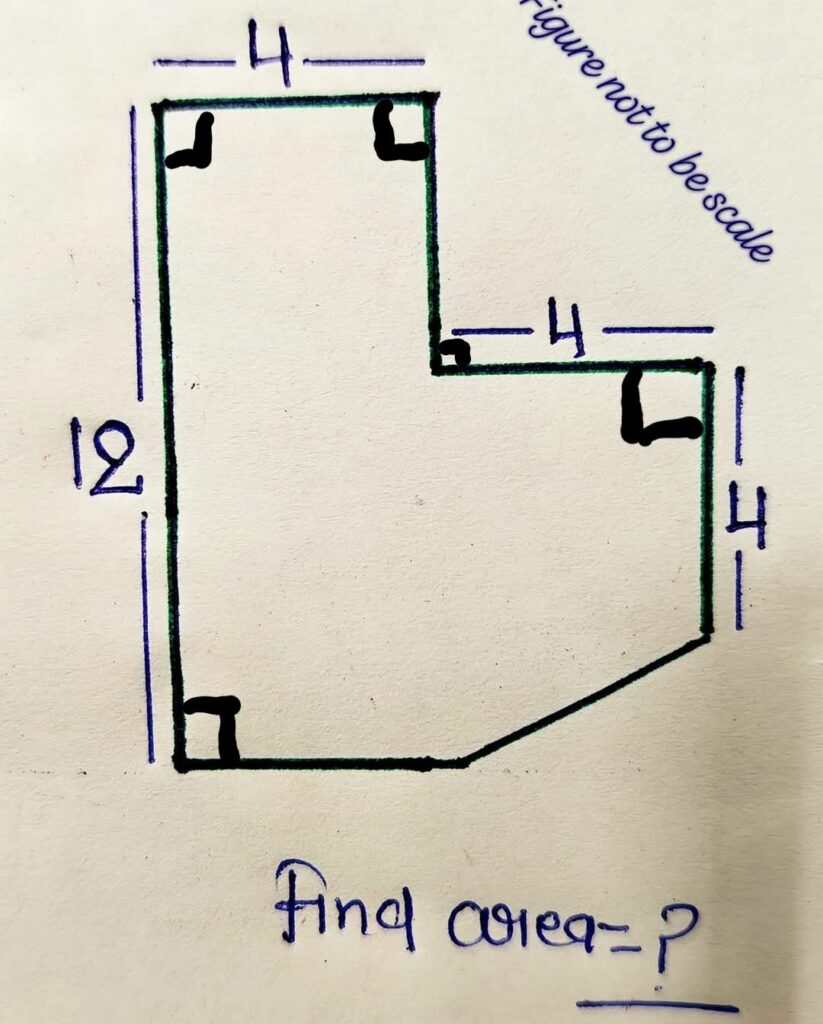 Figure not to be scale
4
4
12
4
Find area=?